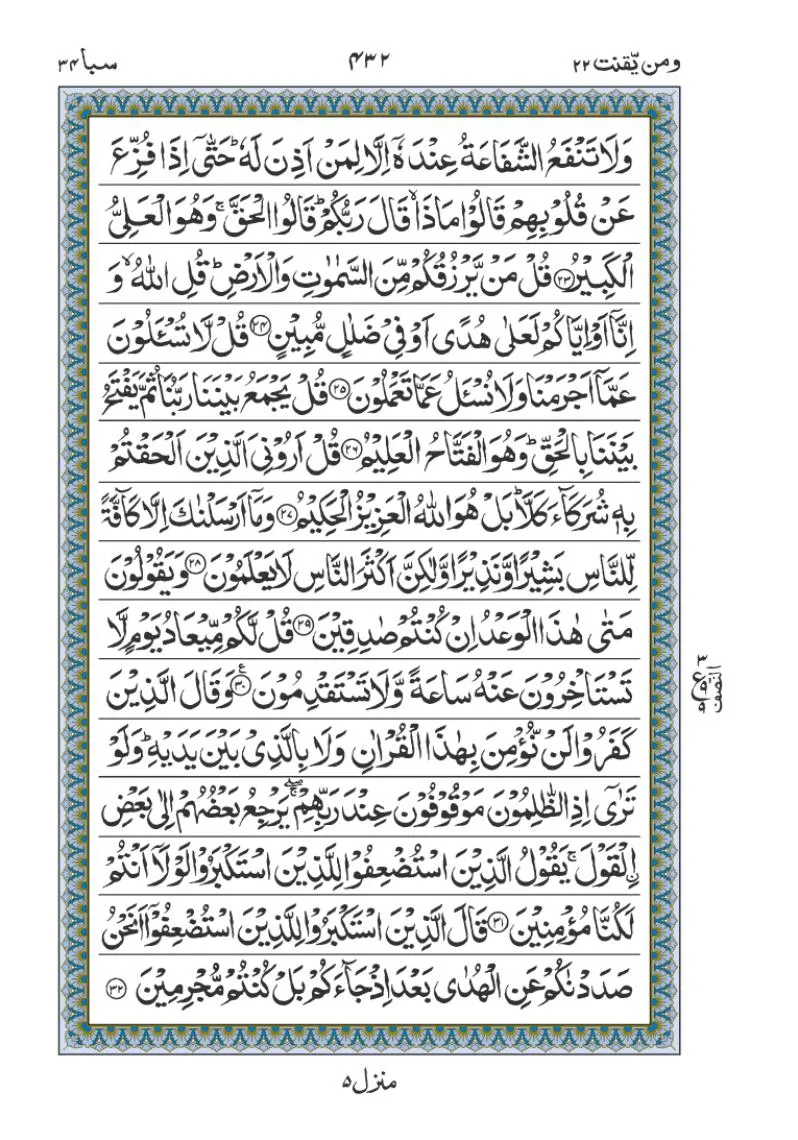 ومن یّقنت ۲۲ ۴۳۲ سبا ۳۴
وَلَا تَنْفَعُ الشَّفَاعَةُ عِنْدَهٗۤ اِلَّا لِمَنْ اَذِنَ لَهٗ ؕ حَتّٰۤی اِذَا فُزِّعَ
عَنْ قُلُوْبِهِمْ قَالُوْا مَاذَا ۙ قَالَ رَبُّكُمْ ؕ قَالُوا الْحَقَّ ۚ وَهُوَ الْعَلِیُّ
الْكَبِیْرُ ﴿۲۳﴾ قُلْ مَنْ یَّرْزُقُكُمْ مِّنَ السَّمٰوٰتِ وَالْاَرْضِ ؕ قُلِ اللّٰهُ ۙ وَ
اِنَّاۤ اَوْ اِیَّاكُمْ لَعَلٰی هُدًی اَوْ فِیْ ضَلٰلٍ مُّبِیْنٍ ﴿۲۴﴾ قُلْ لَّا تُسْـَٔلُوْنَ
عَمَّاۤ اَجْرَمْنَا وَلَا نُسْـَٔلُ عَمَّا تَعْمَلُوْنَ ﴿۲۵﴾ قُلْ یَجْمَعُ بَیْنَنَا رَبُّنَا ثُمَّ یَفْتَحُ
بَیْنَنَا بِالْحَقِّ ؕ وَهُوَ الْفَتَّاحُ الْعَلِیْمُ ﴿۲۶﴾ قُلْ اَرُوْنِیَ الَّذِیْنَ اَلْحَقْتُمْ
بِهٖ شُرَكَآءَ كَلَّا ؕ بَلْ هُوَ اللّٰهُ الْعَزِیْزُ الْحَكِیْمُ ﴿۲۷﴾ وَمَاۤ اَرْسَلْنٰكَ اِلَّا كَآفَّةً
لِّلنَّاسِ بَشِیْرًا وَّنَذِیْرًا وَّلٰكِنَّ اَكْثَرَ النَّاسِ لَا یَعْلَمُوْنَ ﴿۲۸﴾ وَیَقُوْلُوْنَ
مَتٰی هٰذَا الْوَعْدُ اِنْ كُنْتُمْ صٰدِقِیْنَ ﴿۲۹﴾ قُلْ لَّكُمْ مِّیْعَادُ یَوْمٍ لَّا
تَسْتَاْخِرُوْنَ عَنْهُ سَاعَةً وَّلَا تَسْتَقْدِمُوْنَ ﴿۳۰﴾ وَقَالَ الَّذِیْنَ
كَفَرُوْا لَنْ نُّؤْمِنَ بِهٰذَا الْقُرْاٰنِ وَلَا بِالَّذِیْ بَیْنَ یَدَیْهِ ؕ وَلَوْ
تَرٰۤی اِذِ الظّٰلِمُوْنَ مَوْقُوْفُوْنَ عِنْدَ رَبِّهِمْ ۖۚ یَرْجِعُ بَعْضُهُمْ اِلٰی بَعْضِ
ِ۟الْقَوْلَ ۚ یَقُوْلُ الَّذِیْنَ اسْتُضْعِفُوْا لِلَّذِیْنَ اسْتَكْبَرُوْا لَوْلَاۤ اَنْتُمْ
لَكُنَّا مُؤْمِنِیْنَ ﴿۳۱﴾ قَالَ الَّذِیْنَ اسْتَكْبَرُوْا لِلَّذِیْنَ اسْتُضْعِفُوْۤا اَنَحْنُ
صَدَدْنٰكُمْ عَنِ الْهُدٰی بَعْدَ اِذْ جَآءَكُمْ بَلْ كُنْتُمْ مُّجْرِمِیْنَ ﴿۳۲﴾
النصف
منزل ۵